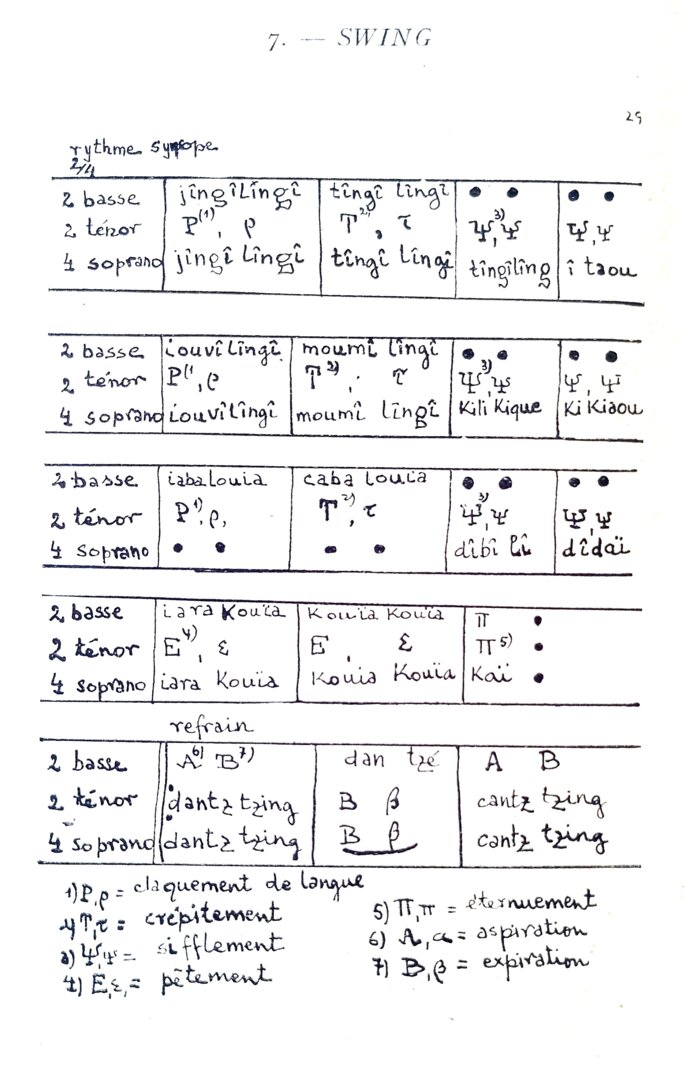 7. — SWING
25
rythme syncope
2/4
2 basse jîngîlîngî tîngî lîngî • • • •
2 ténor P(1), ρ T2), τ Ψ3),ψ Ψ,ψ
4 soprano jîngî lîngî tîngî lîngî tîngîlîng î taou
2 basse iouvîlîngî moumî lîngî • • • •
2 ténor P(1,ρ T2), τ Ψ3),ψ Ψ, ψ
4 soprano iouvîlîngî moumî lîngî Kili Kique Ki Kiaou
2 basse iabalouia caba louïa • • • •
2 ténor P1),ρ, T2), τ Ψ3),ψ Ψ,ψ
4 soprano • • • • dîbî lî dîdaï
2 basse iara Kouïa Kouïa Kouïa Π •
2 ténor E4), ε E, ε Π5) •
4 soprano iara Kouïa Kouia Kouïa Kaï •
refrain
2 basse A6) B7) dan tzé A B
2 ténor dantz tzing B β cantz tzing
4 soprano dantz tzing B β cantz tzing
1) P,ρ = claquement de langue
2) T,τ = crépitement
3) Ψ,ψ = sifflement
4) E,ε, = pêtement
5) Π,π = éternuement
6) A,α = aspiration
7) B,β = expiration